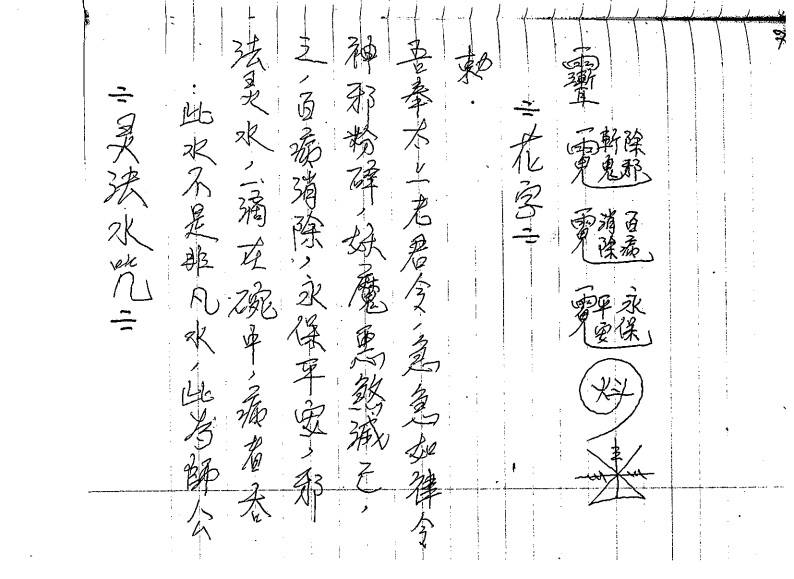 =灵法水咒=
:此水不是非凡水,此为師公
法灵水,一滴在碗中,病者吞
之,百病消除,永保平安,邪
神邪粉碎,妖魔恶煞減亡,
吾奉太上老君令,急急如律令
勅.
=花字=
除邪
斬鬼
百病
消除
永保
平安